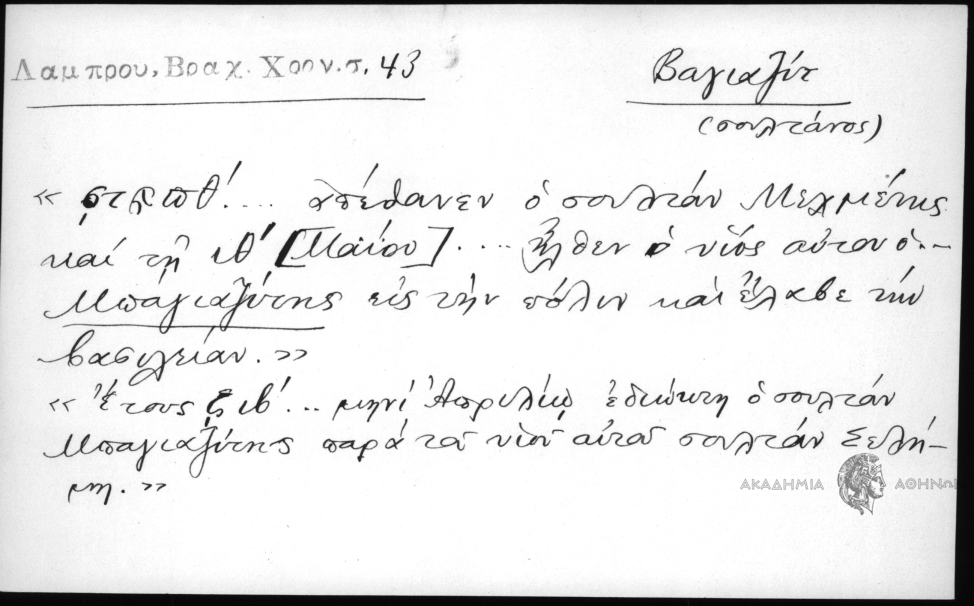 Λαμπρου, Βραχ. Χρον. σ. 43
Βαγιαζίτ
(σουλτάνος)
« ͵ϛϡπθ΄.... ἀπέθανεν ὁ σουλτάν Μεχμέτης
καί τῇ ιθ΄ [Μαΐου] .... ἦλθεν ὁ υἱός αὐτου ὁ
Μπαγιαζήτης εἰς τήν πόλιν καί ἔλαβε τήν
βασιλείαν. »
« Ἔτους ζιβ΄... μηνί Ἀπριλίῳ ἐδιώχτη ὁ σουλτάν
Μπαγιαζήτης παρά τοῦ υἱοῦ αὐτοῦ σουλτάν Σελή-
μη. »
ΑΚΑΔΗΜΙΑ ΑΘΗΝΩΝ